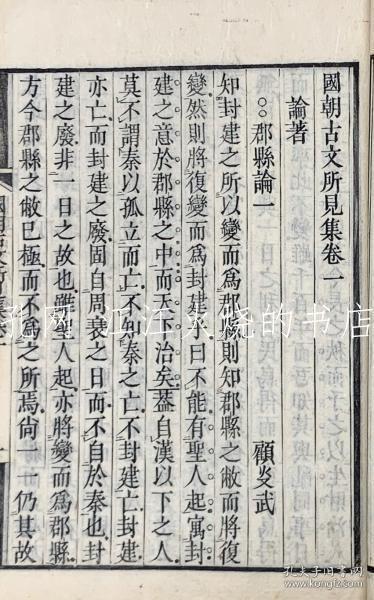 國朝古文所見集卷一
論著
郡縣論一
顧炎武
知封建之所以變而爲郡縣則知郡縣之敝而將復
變然則將復變而爲封建乎曰不能有聖人起寓封
建之意於郡縣之中而天下治矣蓋自漢以下之人
莫不謂秦以孤立而亡不知秦之亡不封建亡封建
亦亡而封建之廢固自周衰之日而不自於秦也封
建之廢非一日之故也雖聖人起亦將變而爲郡縣
方今郡縣之敝已極而不爲之所焉尚一一仍其故